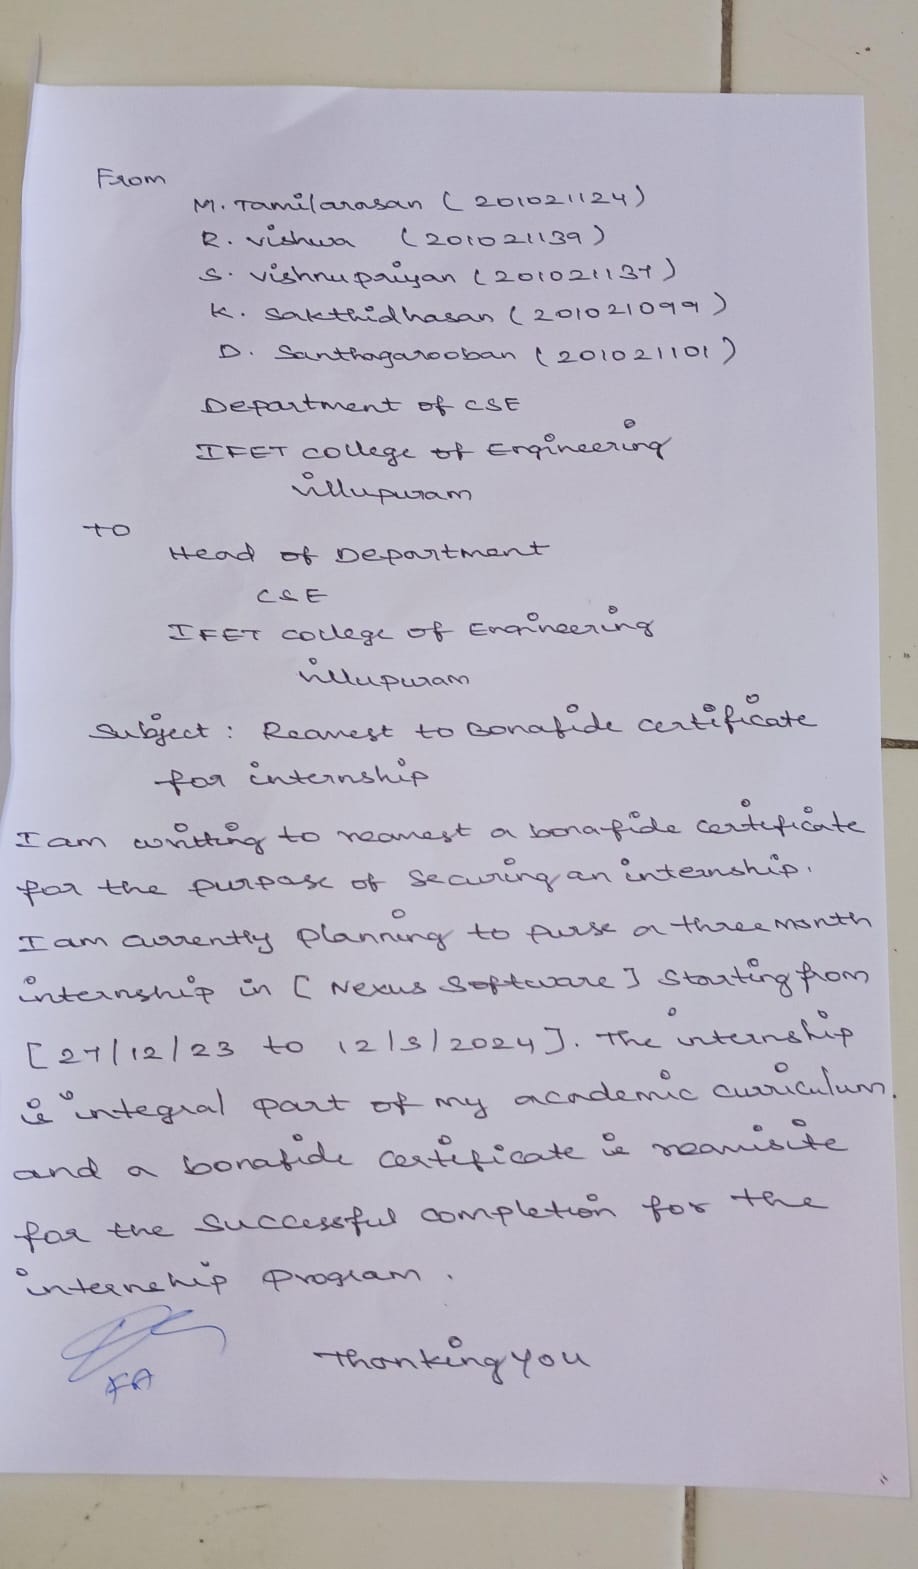 From
M. Tamilarasan ( 201021124)
R. vishwa ( 201021139 )
S. vishnupriyan ( 201021137 )
K. Sakthidhasan ( 201021099 )
D. Santhagarooban ( 201021101 )
Department of CSE
IFET college of Engineering
villupuram
To
Head of Department
CSE
IFET college of Engineering
villupuram
Subject : Request to Bonafide certificate
for internship
I am writting to request a bonafide certificate
for the purpose of Securing an internship.
I am currently planning to purse a three month
internship in [ Nexus Software ] Starting from
[ 27/12/23 to 12/3/2024 ]. The internship
is integral part of my academic curriculum.
and a bonafide certificate is requisite
for the Successful completion for the
internship program .
FA
Thanking you